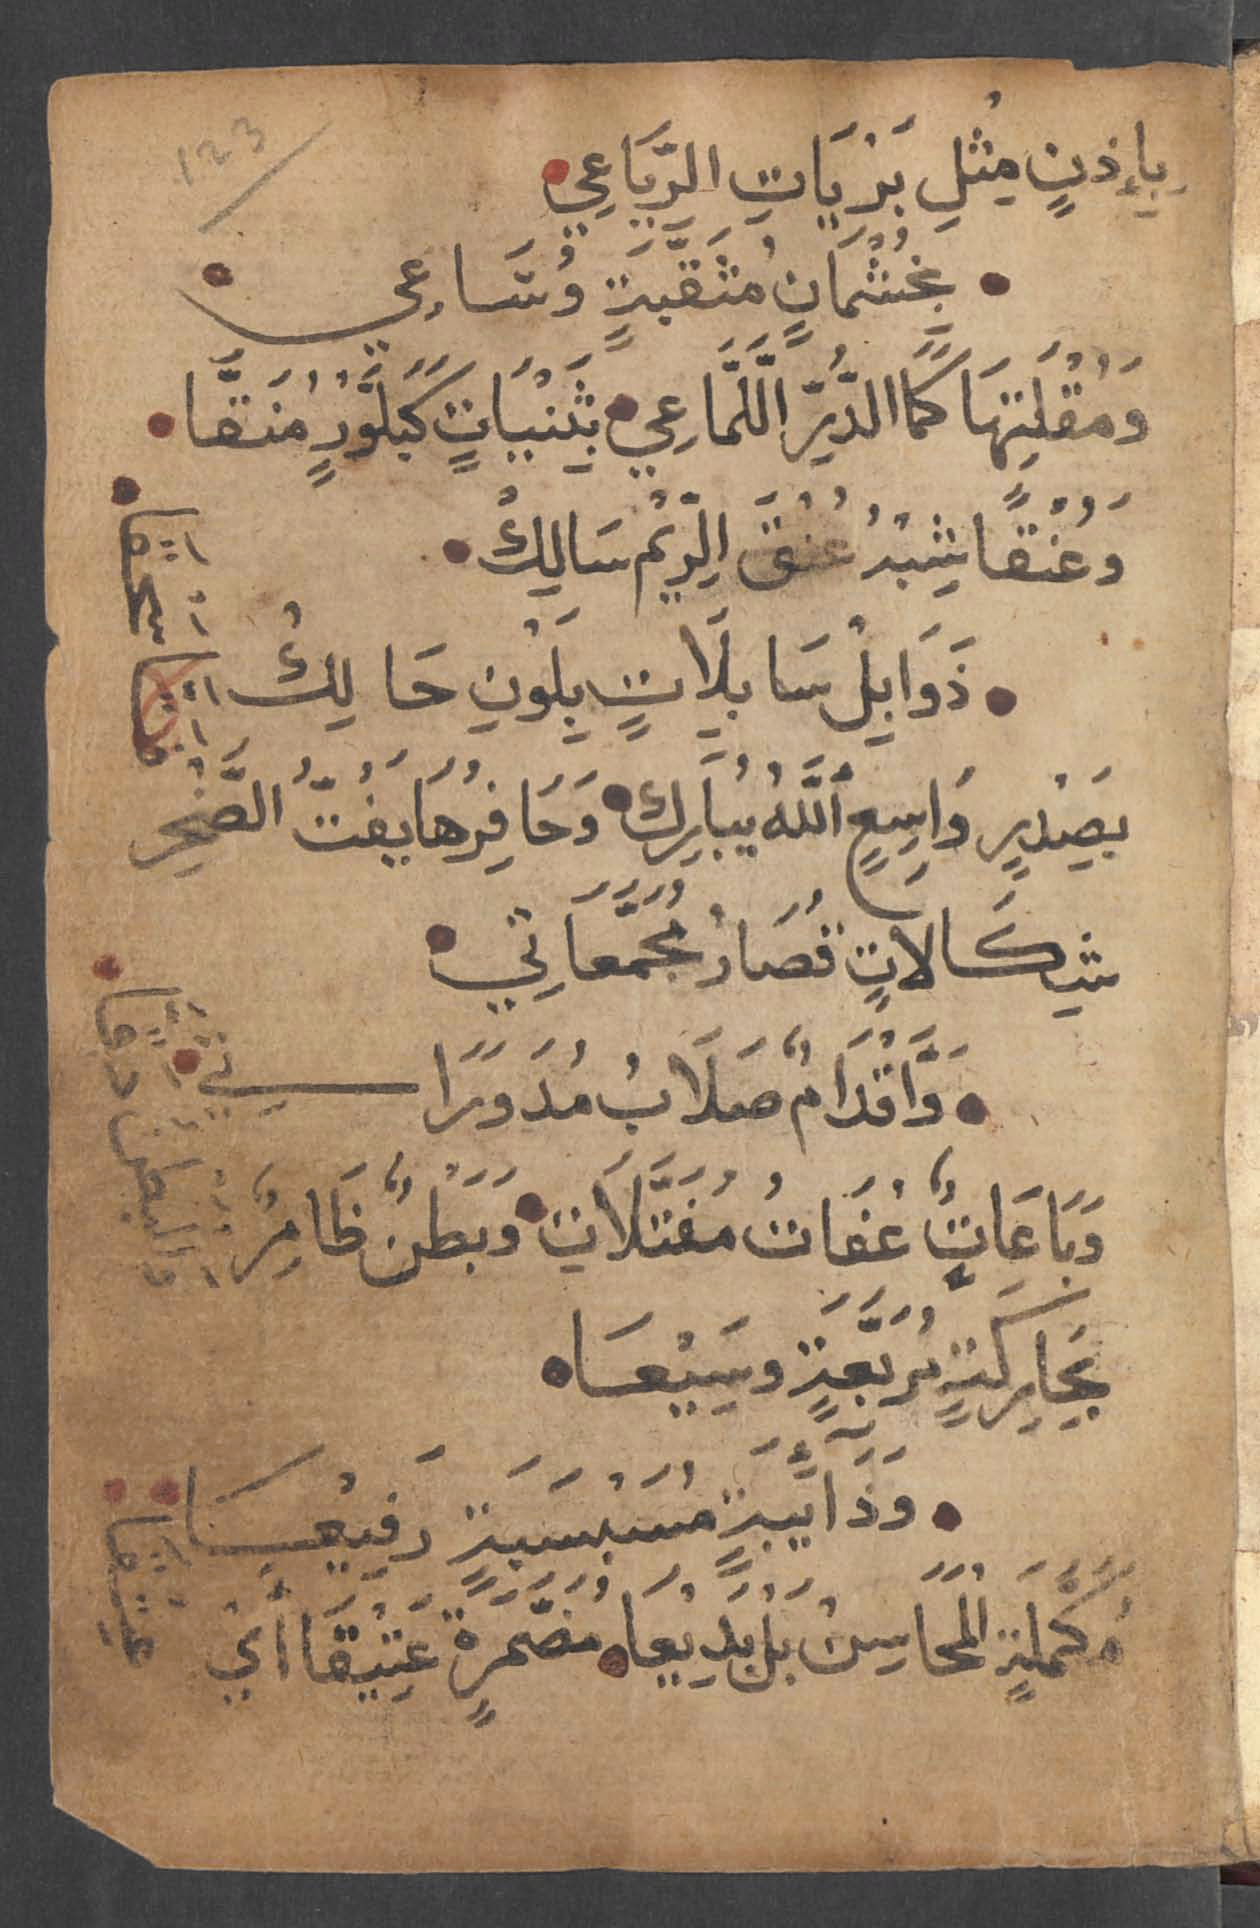 123
بِإِذنٍ مِثْلِ بَرْيَاتِ الرَّبَاعِي
بِخُشْمَانٍ مُثَقَّبَةٍ وُسَاعِي
وَمُقْلَتِهَا كَمَا الدُّرِّ اللَّمَّاعِي بِثَنْيَاتٍ كَبَلُّورٍ مُنَقَّا
وَعُنْقًا شِبْهُ عُنْقَ الرِّيْمِ سَالِكْ
ذَوَايِلْ سَابِلَاتٍ بِلَوْنِ حَالِكْ
بِصَدْرٍ وَاسِعٍ اَللَّهُ يُبَارِكْ وَحَافِرُهَا يَفُتُّ الصَّخْرِ
شِكَالَاتٍ قُصَارُ مُجَمَّعَاتِي
وَّاَقْدَامٌ صَلَابُ مُدَوَّرَاتِي
وَبَاعَاتٌ عُفَاتُ مُفَتَّلَاتِ وَبَطْنٌ ظَامِرٌ
بِجَارِكَةٍ مُرَبَّعَةٍ وَسِيْعَا
وَذَايِبَةٍ مُسَبْسَبَةٍ رَفِيْعَا
مُكَمَّلَةِ الْمَحَاسِنْ بَلْ بَدِيْعَا مُضَمَّرَةٍ عَتِيْقَا اَيْ